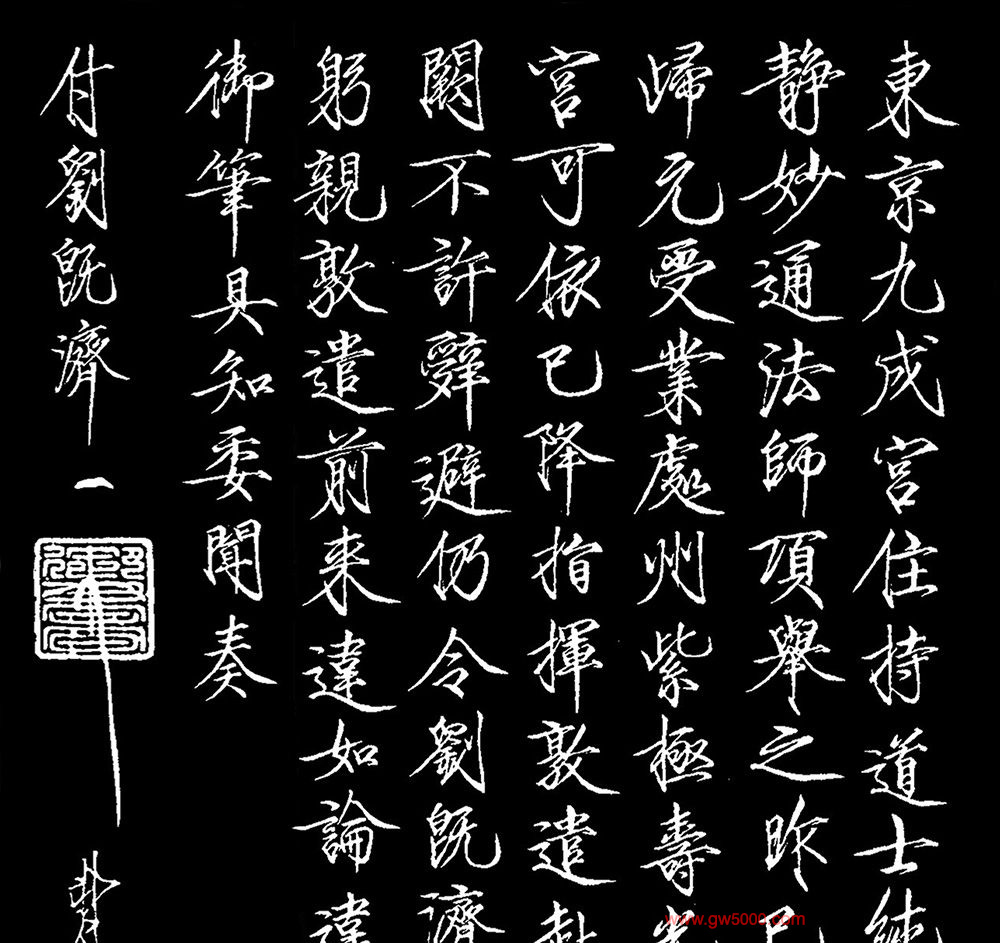 東京九成宮住持道士純
靜妙通法師項舉之昨已
歸元受業處州紫極壽光
宮可依已降指揮敦遣赴
闕不許辭避仍令劉既濟
躬親敦遣前来違如論違
御筆具知委聞奏
付劉既濟
www.gw5000.com